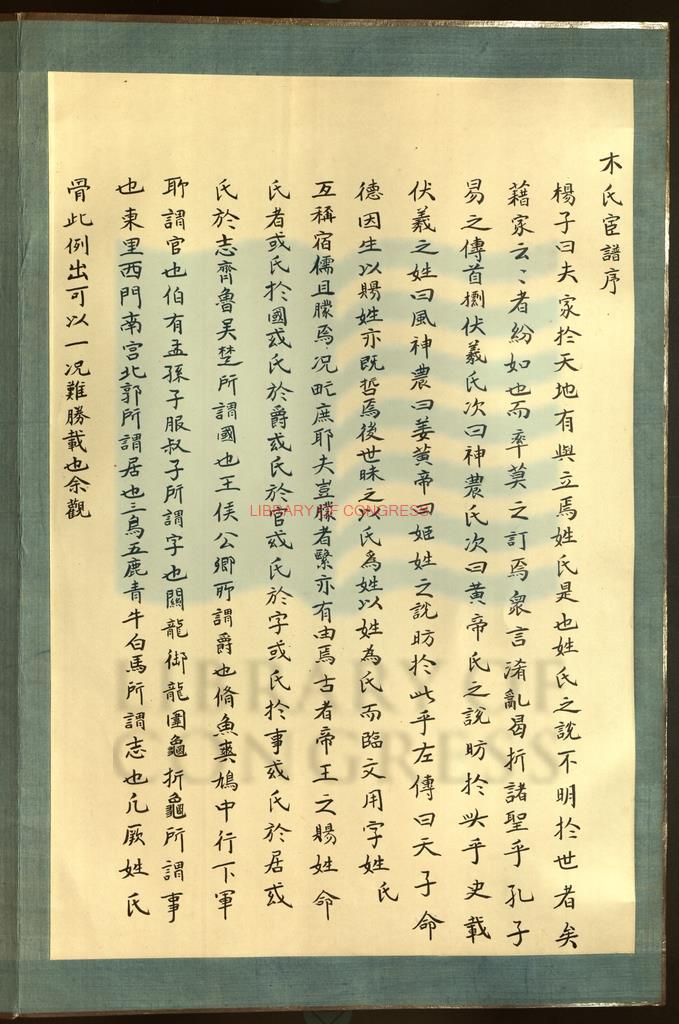 木氏宦譜序
楊子曰夫家於天地有與立焉姓氏是也姓氏之說不明於世者矣
藉家云〻者紛如也而率莫之訂焉衆言淆亂曷折諸聖乎孔子
易之傳首捌伏羲氏次曰神農氏次曰黃帝氏之說昉於此乎史載
伏羲之姓曰風神農曰姜黃帝曰姬姓之說昉於此乎左傳曰天子命
德因生以賜姓亦既哲焉後世昧之以氏爲姓以姓為氏而臨文用字姓氏
互稱宿儒且朦焉况甿庶耶夫豈朦者繄亦有由焉古者帝王之賜姓命
氏者或氏於國或氏於爵或氏於官或氏於字或氏於事或氏於居或
氏於志齊魯吴楚所謂國也王侯公卿所謂爵也脩魚爽鳩中行下軍
所謂官也伯有孟孫子服叔子所謂字也關龍御龍圉龜折龜所謂事
也東里西門南宮北郭所謂居也三烏五鹿青牛白馬所謂志也凡厥姓氏
骨此例出可以一况難勝載也余觀
LIBRARY OF CONGRESS
LIBRARY OF
CONGRESS